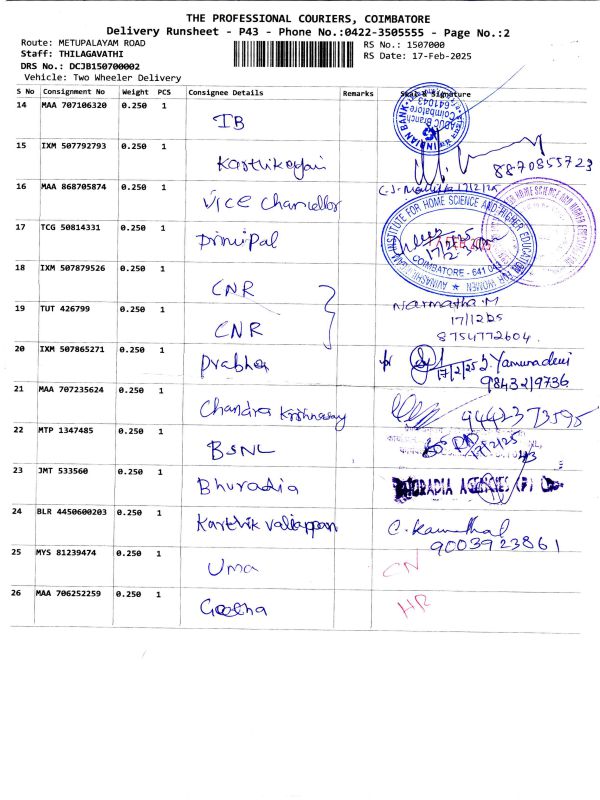 THE PROFESSIONAL COURIERS, COIMBATORE
Delivery Runsheet - P43 - Phone No.:0422-3505555 - Page No.:2
Route: METUPALAYAM ROAD RS No.: 1507000
Staff: THILAGAVATHI RS Date: 17-Feb-2025
DRS No.: DCJB150700002
Vehicle: Two Wheeler Delivery
S No Consignment No Weight PCS Consignee Details Remarks Seal & Signature
14 MAA 707106320 0.250 1 IB
INDIAN BANK
Branch
641043
15 IXM 507792793 0.250 1 Karthikeyan 8870855723
16 MAA 868705874 0.250 1 Vice Chancellor 17/2/25
17 TCG 50814331 0.250 1 Principal
INSTITUTE FOR HOME SCIENCE AND HIGHER EDUCATION FOR WOMEN
COIMBATORE - 641 043
18 IXM 507879526 0.250 1 CNR
19 TUT 426799 0.250 1 CNR Narmatha.M
17/12/25
8754772604.
20 IXM 507865271 0.250 1 Prabha 17/2/25 J. Yamuradevi
9843219736
21 MAA 707235624 0.250 1 Chandra Krishnasay 9442373595
22 MTP 1347485 0.250 1 BSNL 17/2/25
23 JMT 533560 0.250 1 Bhuradia BHORADIA AGENCIES (P) L
24 BLR 4450600203 0.250 1 Karthik Valiappan
9003923861
25 MYS 81239474 0.250 1 Uma CN
26 MAA 706252259 0.250 1 Geetha HR